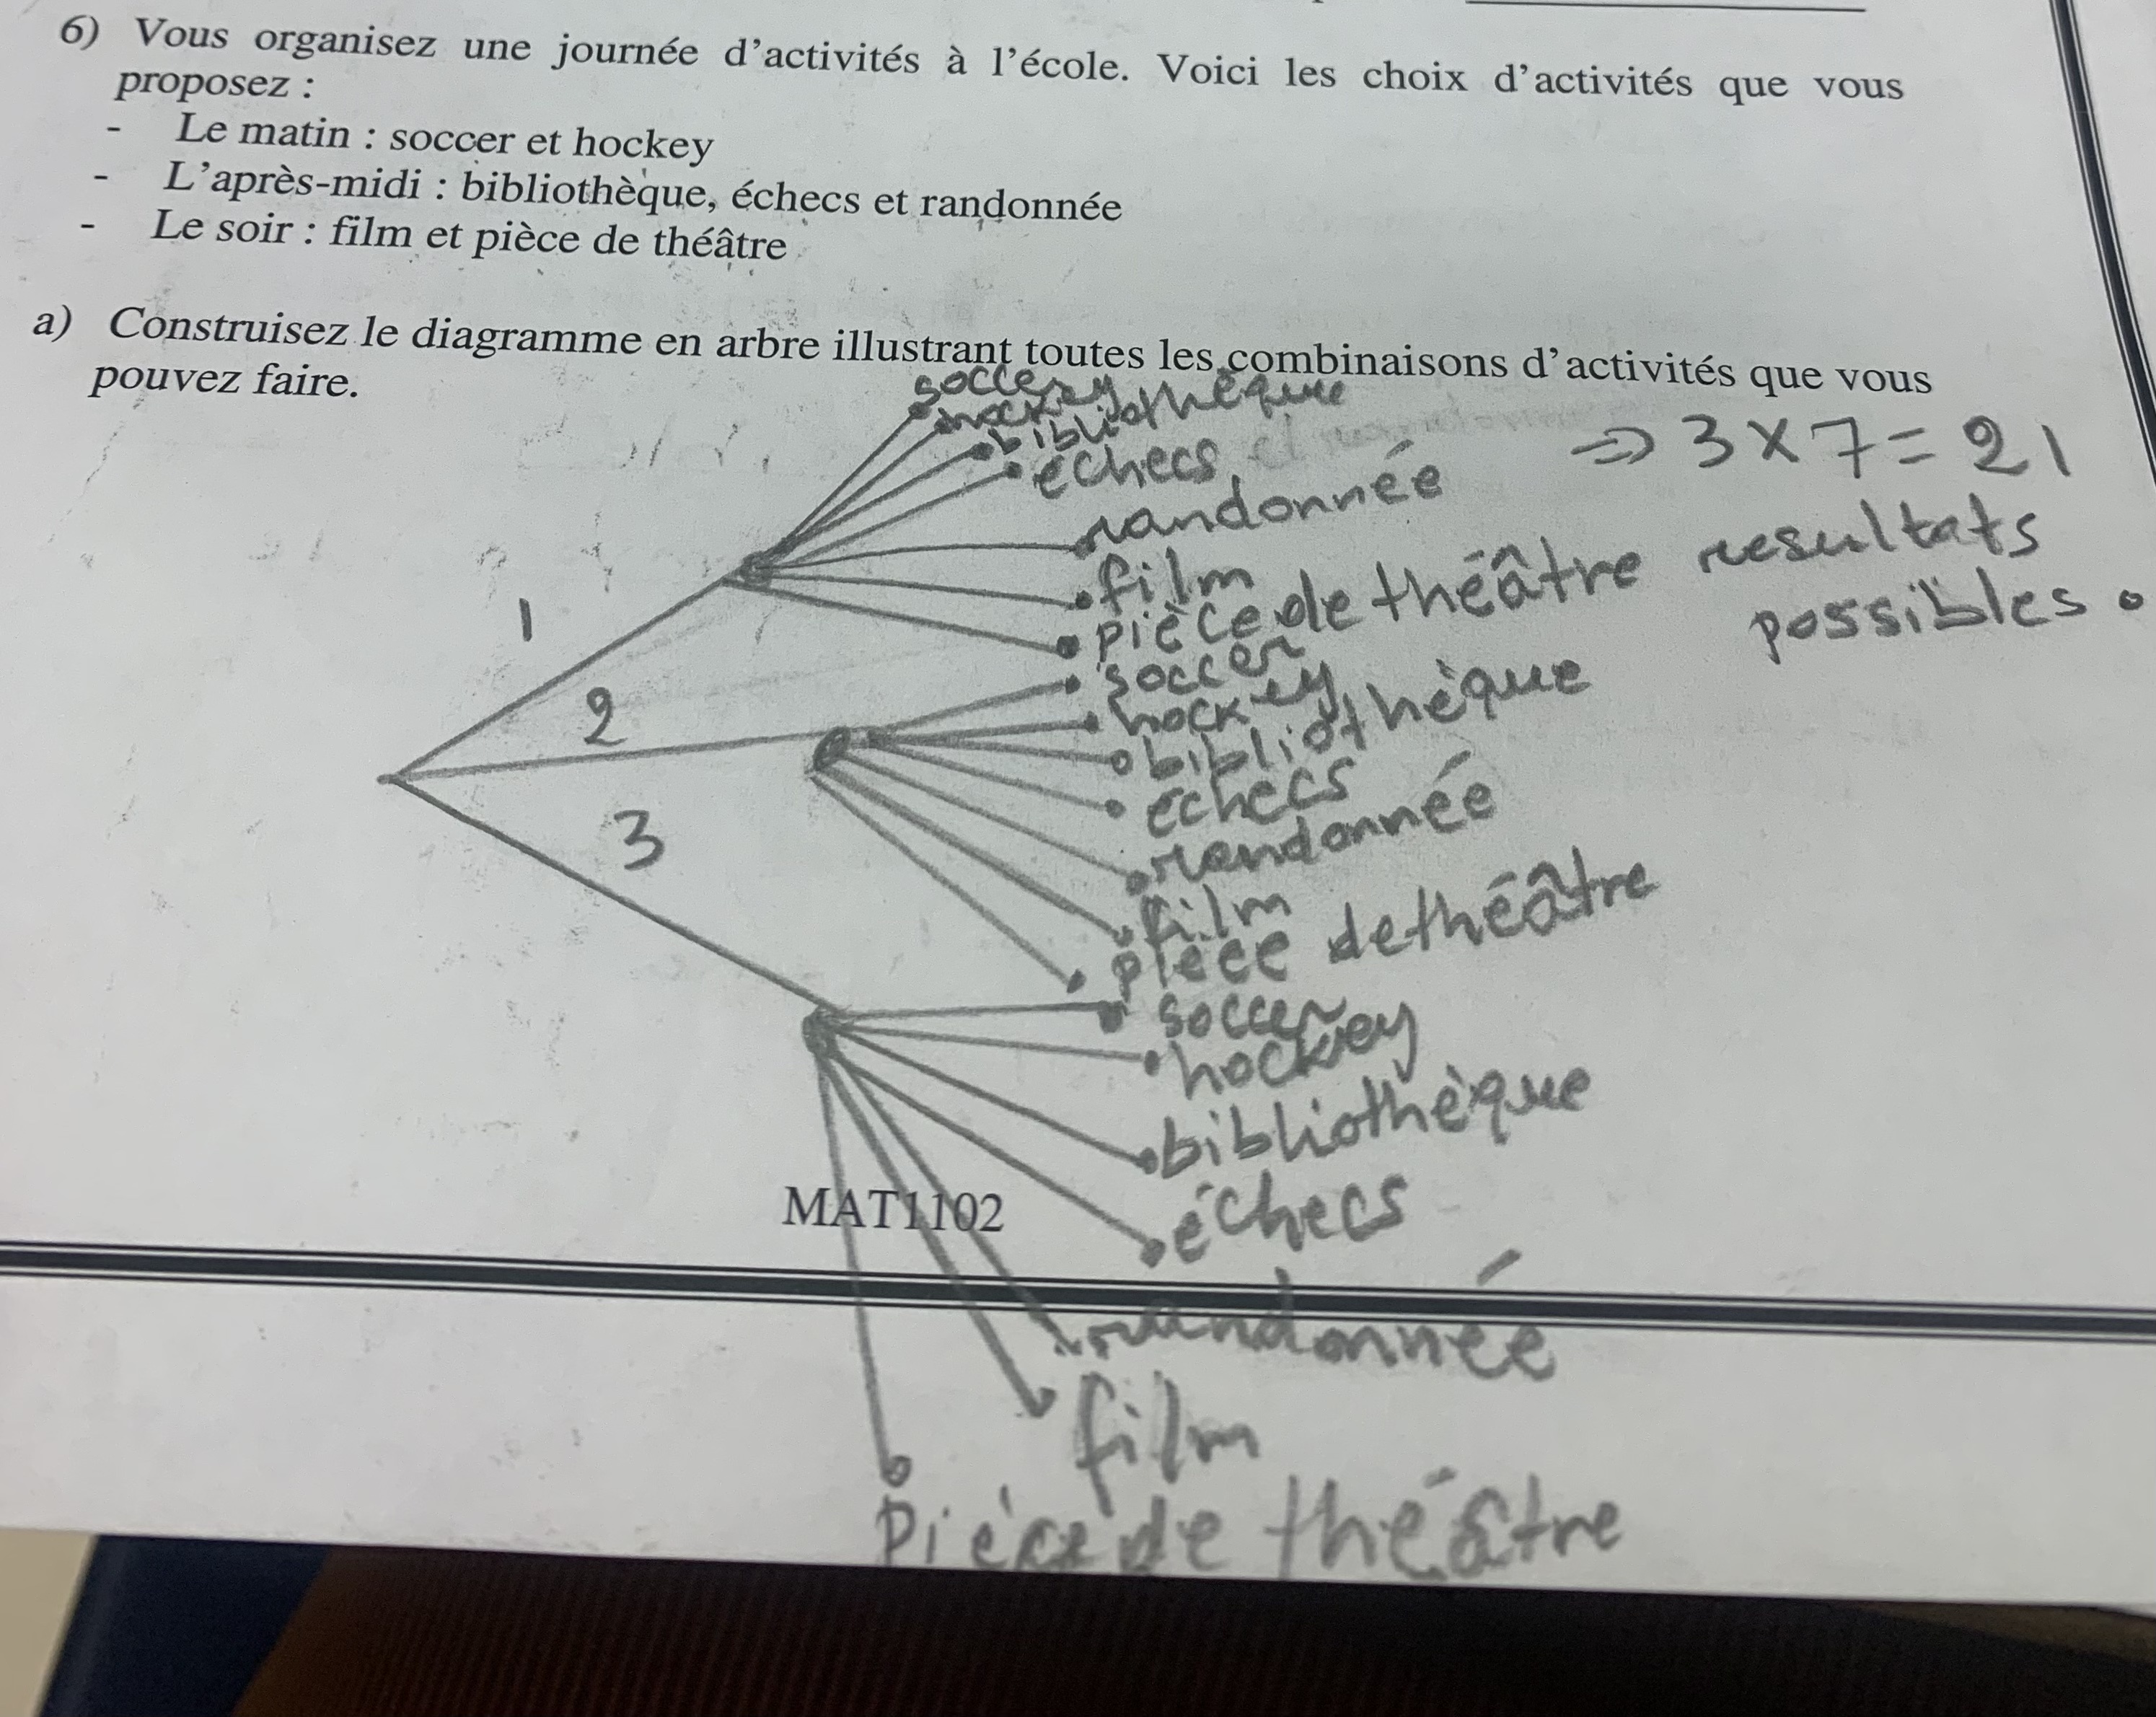 6) Vous organisez une journée d'activités à l'école. Voici les choix d'activités que vous
proposez :
- Le matin : soccer et hockey
- L'après-midi : bibliothèque, échecs et randonnée
- Le soir : film et pièce de théâtre
a) Construisez le diagramme en arbre illustrant toutes les combinaisons d'activités que vous
pouvez faire.
soccer
hockey
bibliothèque
échecs
randonnée
film
pièce de théâtre
⇒ 3 × 7 = 21
resultats
possibles.
1
2
3
soccer
hockey
bibliothèque
échecs
randonnée
film
pièce de théâtre
soccer
hockey
bibliothèque
échecs
randonnée
film
pièce de théâtre
MAT1102